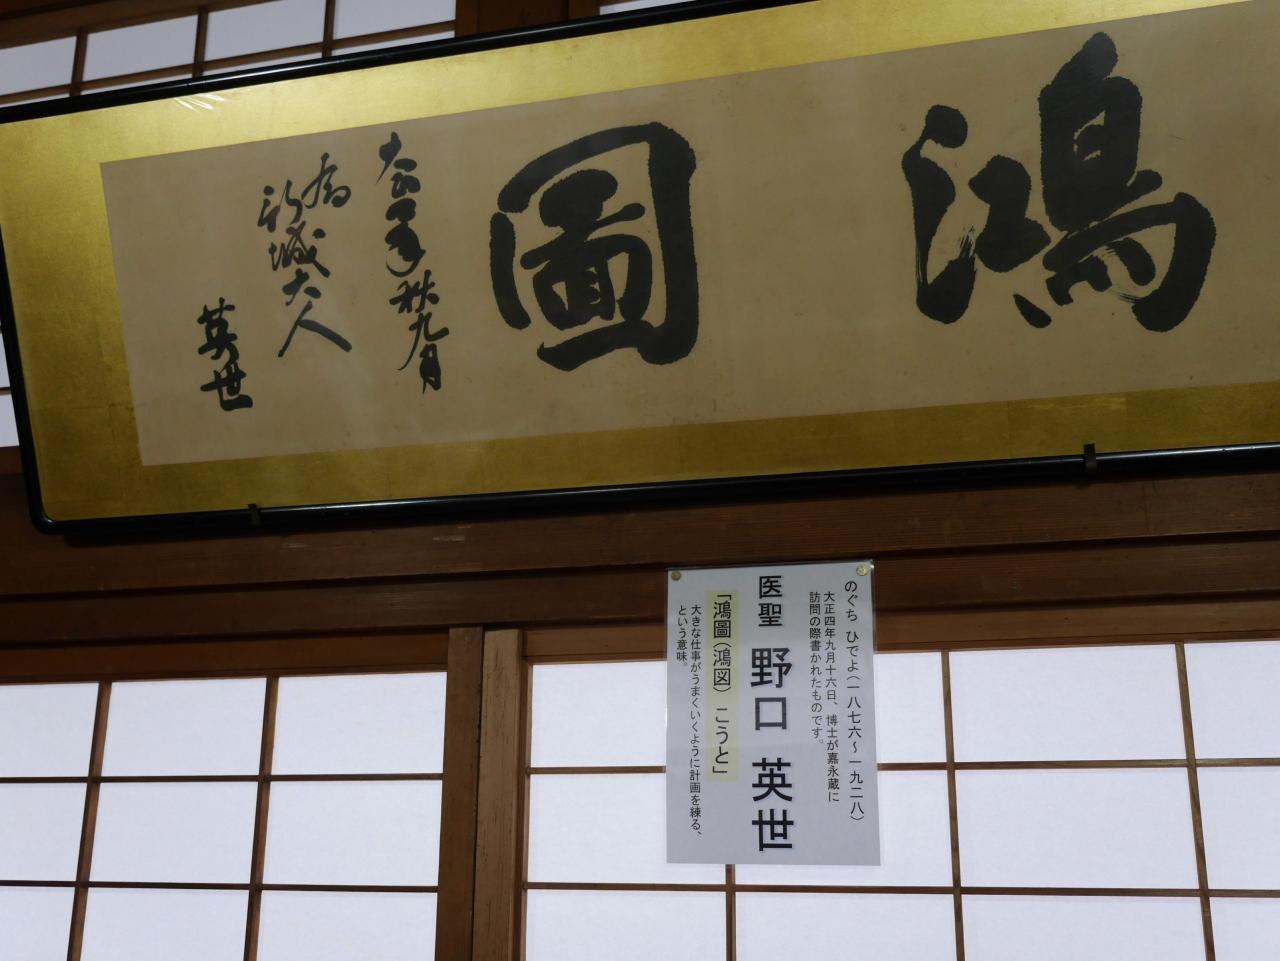 鴻圖
大正四年秋九月
為
新城大人
英世
のぐち ひでよ(一八七六～一九二八)
大正四年九月十六日、博士が嘉永蔵に
訪問の際書かれたものです。
医聖 野口 英世
「鴻圖(鴻図) こうと」
大きな仕事がうまくいくように計画を練る、
という意味。